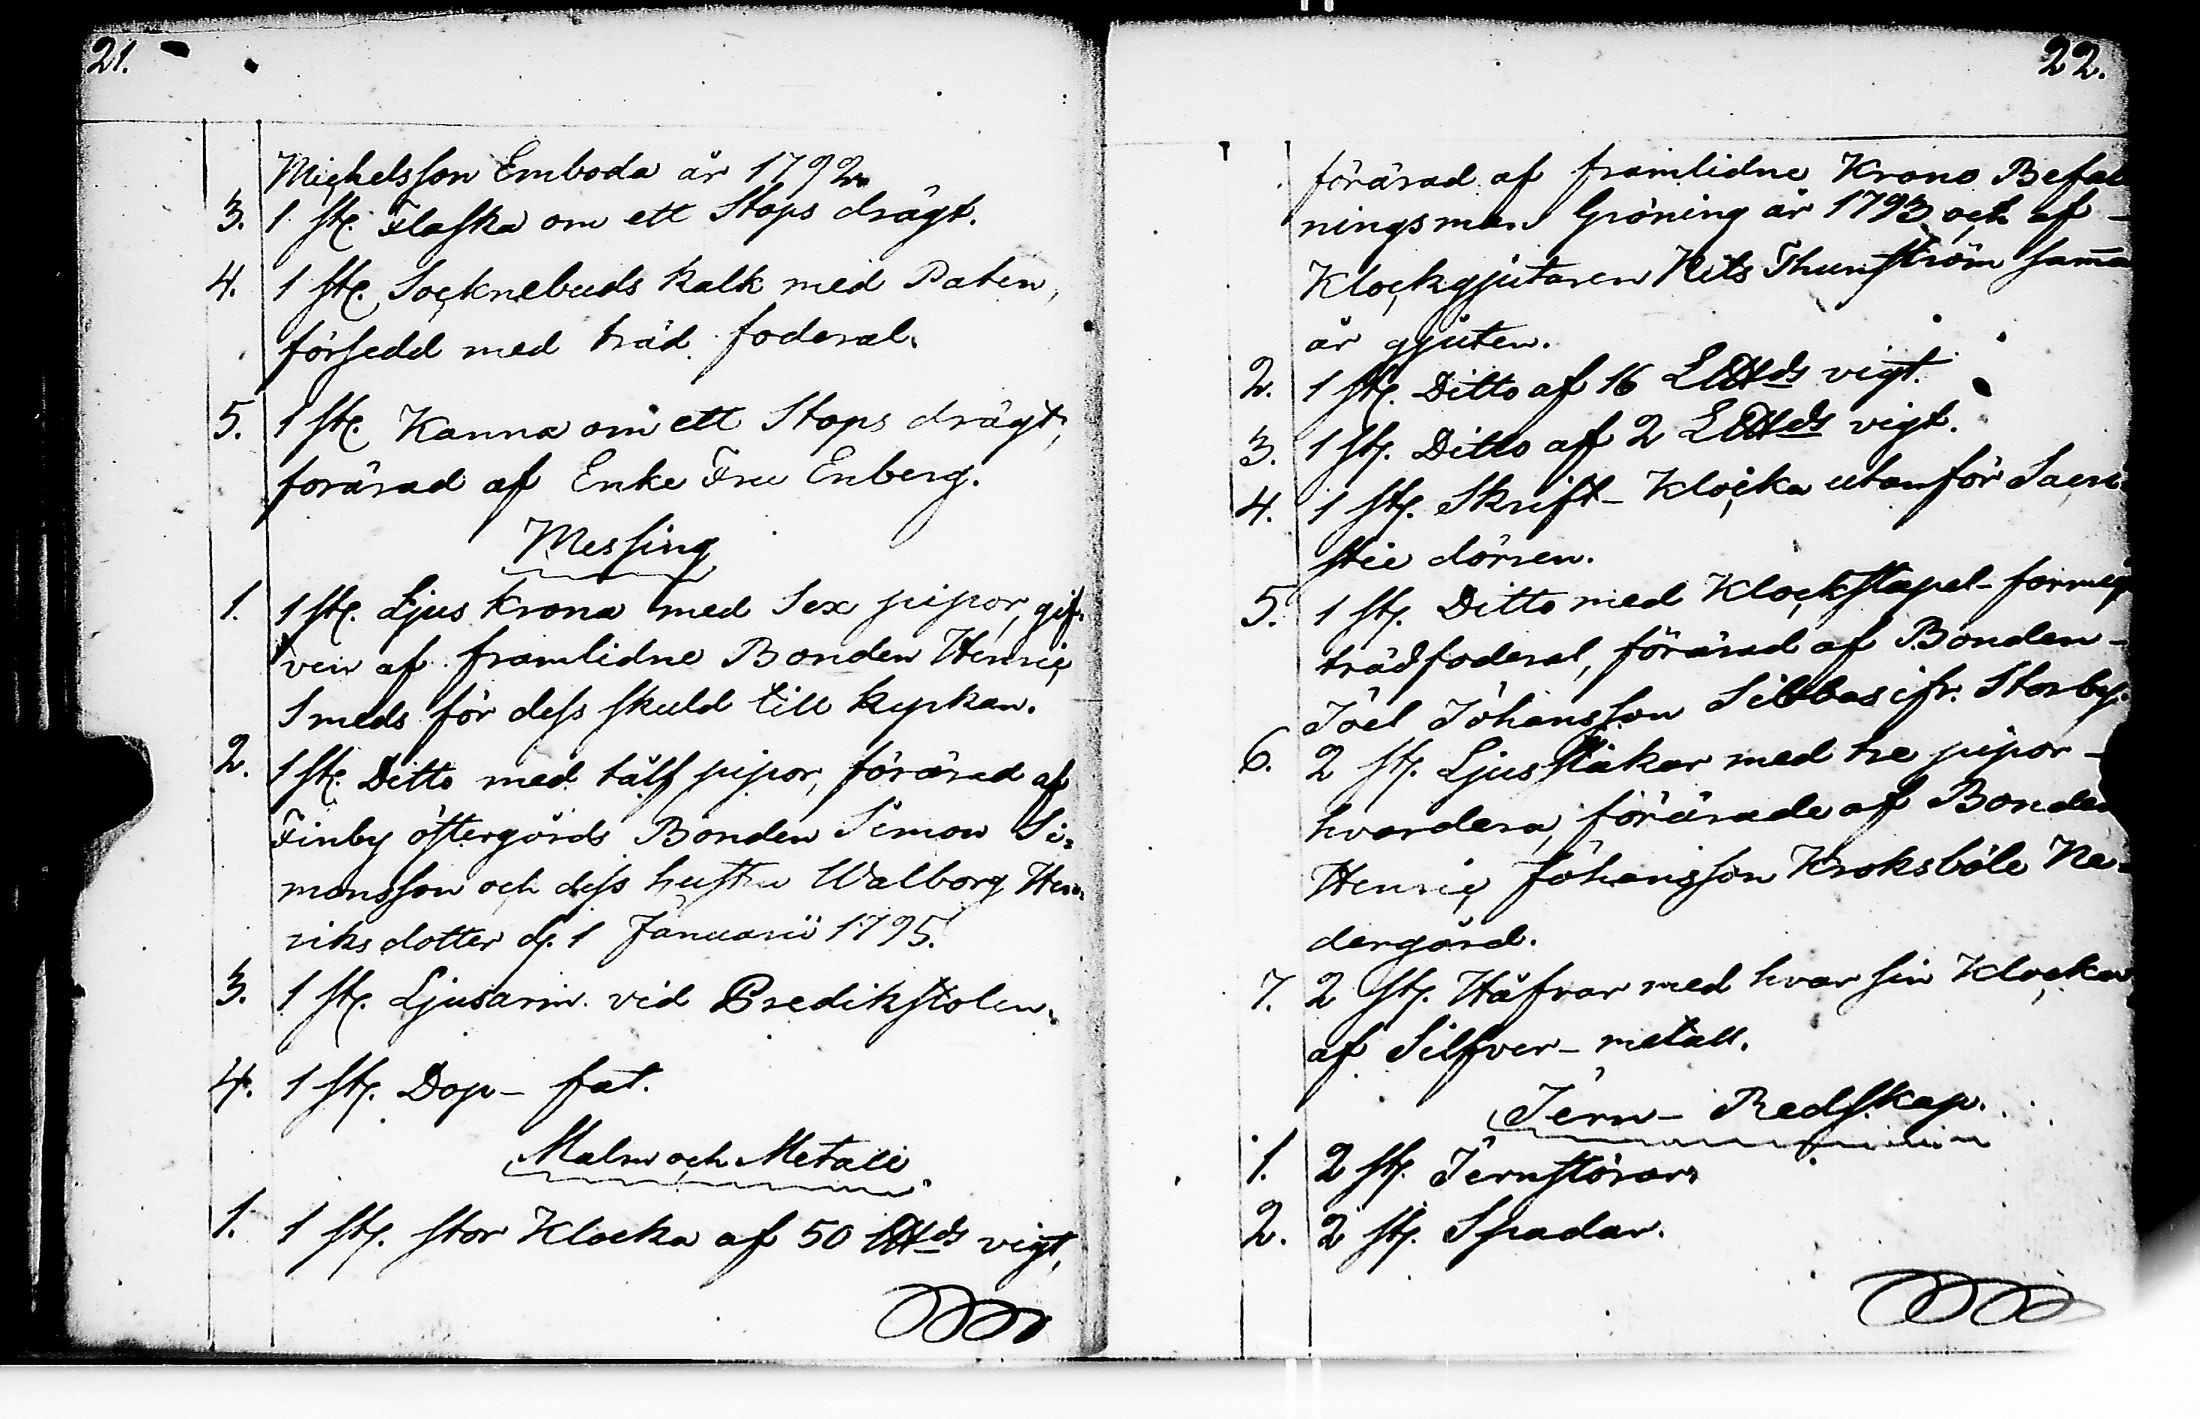 21.
Michelsson Emboda år 1792.
3. 1 st. Flaska om ett Stops drägt.
4. 1 st. Socknebuds kalk med Paten,
försedd med träd foderal.
5. 1 st. Kanna om ett Stops drägt,
förärad af Enke Fru Enberg.
Messing
1. 1 st. Ljus krona med Sex pipor, gif-
ven af framlidne Bonden Henric
Smeds för dess skuld till kyrkan.
2. 1 st. Ditto med tålf pipor, förärad af
Finby östergårds Bonden Simon Si=
monsson och dess hustru Walborg Hen=
riksdotter d. 1 Januarii 1795.
3. 1 st. Ljusarm vid Predikstolen.
4. 1 st. Dop- fat.
Malm och Metall
1. 1 st. stor Klocka af 50 vigt,
22.
förärad af framlidne Krono Befal
ningsman Gröning år 1793 och af -
Klockgjutaren Nils Thunström samma
år gjuten.
2. 1 st. Ditto af 16 vigt.
3. 1 st. Ditto af 2 vigt.
4. 1 st. Skrift- Klocka utanför Sacri-
stie dörren.
5. 1 st. Ditto med Klockstapel-formigt
trädfoderal, förärad af Bonden -
Joel Johansson Sibbas ifr. Storby.
6. 2 st. Ljusstakar med tre pipor -
hvardera, förärade af Bonden
Henric Johansson Kroksböle Ne=
dergård.
7. 2 st. Håfvar med hvar sin Klocka
af Silfver- metall.
Jern- Redskap.
1. 2 st. Jernstörar
2. 2 st. Spadar.